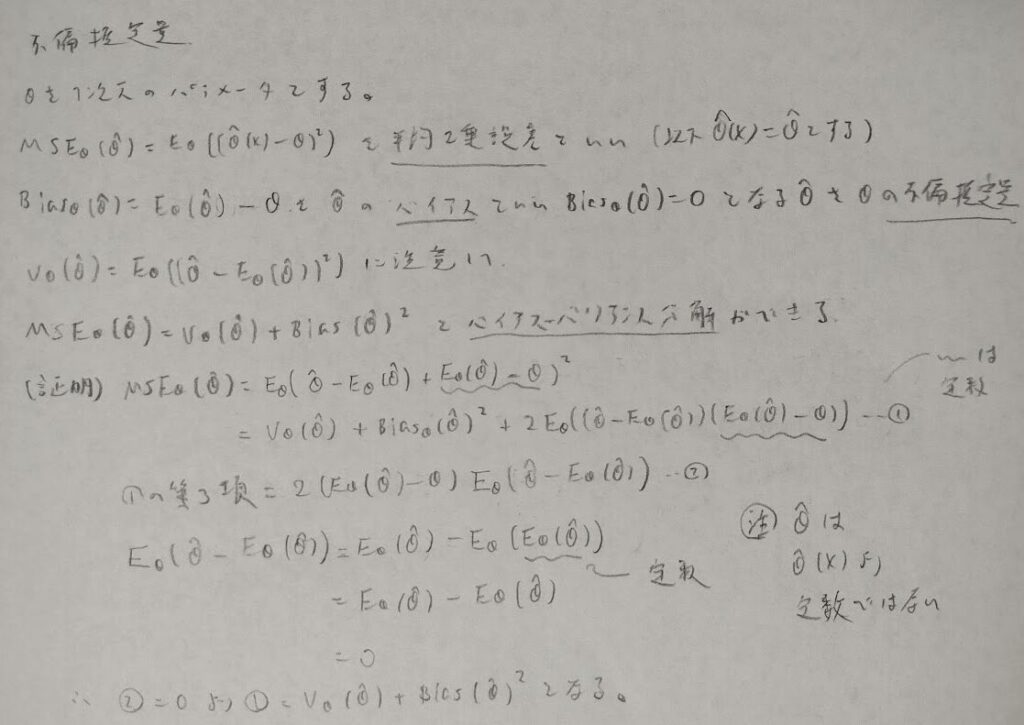 不偏推定量
θを1次元のパラメータとする。
MSE_θ(θ̂) = E_θ((θ̂(X)-θ)²) を平均2乗誤差といい (以下 θ̂(X)=θ̂とする)
Bias_θ(θ̂) = E_θ(θ̂) - θ を θ̂ の バイアス といい Bias_θ(θ̂)=0 となる θ̂ を θ の不偏推定量
V_θ(θ̂) = E_θ((θ̂ - E_θ(θ̂))²) に注意し
MSE_θ(θ̂) = V_θ(θ̂) + Bias(θ̂)² と バイアス-バリアンス分解ができる.
(証明) MSE_θ(θ̂) = E_θ(θ̂ - E_θ(θ̂) + E_θ(θ̂) - θ)²
〜は
定数
= V_θ(θ̂) + Bias_θ(θ̂)² + 2E_θ((θ̂ - E_θ(θ̂))(E_θ(θ̂) - θ)) …①
①の第3項 = 2(E_θ(θ̂)-θ) E_θ(θ̂ - E_θ(θ̂)) …②
E_θ(θ̂ - E_θ(θ̂)) = E_θ(θ̂) - E_θ(E_θ(θ̂))
定数
= E_θ(θ̂) - E_θ(θ̂)
= 0
∴ ②=0 より ① = V_θ(θ̂) + Bias(θ̂)² となる。
注) θ̂ は
θ̂(X) より
定数ではない